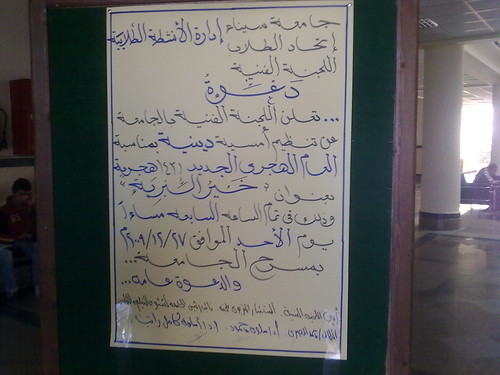 جامعة سيناء
إدارة الأنشطة الطلابية
إتحاد الطلاب
اللجنة الفنية
دعوة
... تعلن اللجنة الفنية بالجامعة
عن تنظيم أمسية دينية بمناسبة
العام الهجرى الجديد ١٤٣١ هجرية
بعنوان " خير البرية "
وذلك فى تمام الساعة السابعة مساءاً
يوم الأحد الموافق ٢٠٠٩/١٢/٢٧م
بمسرح الجامعة...
والدعوة عامة...
أمين اللجنة الفنية